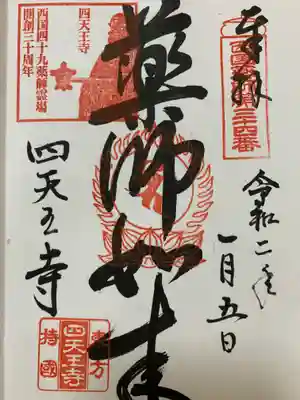 奉拝
令和二年
一月五日
藥師如来
四天王寺
西国四十九薬師霊場
開創三十周年
四天王寺
東方
四天王寺
持國